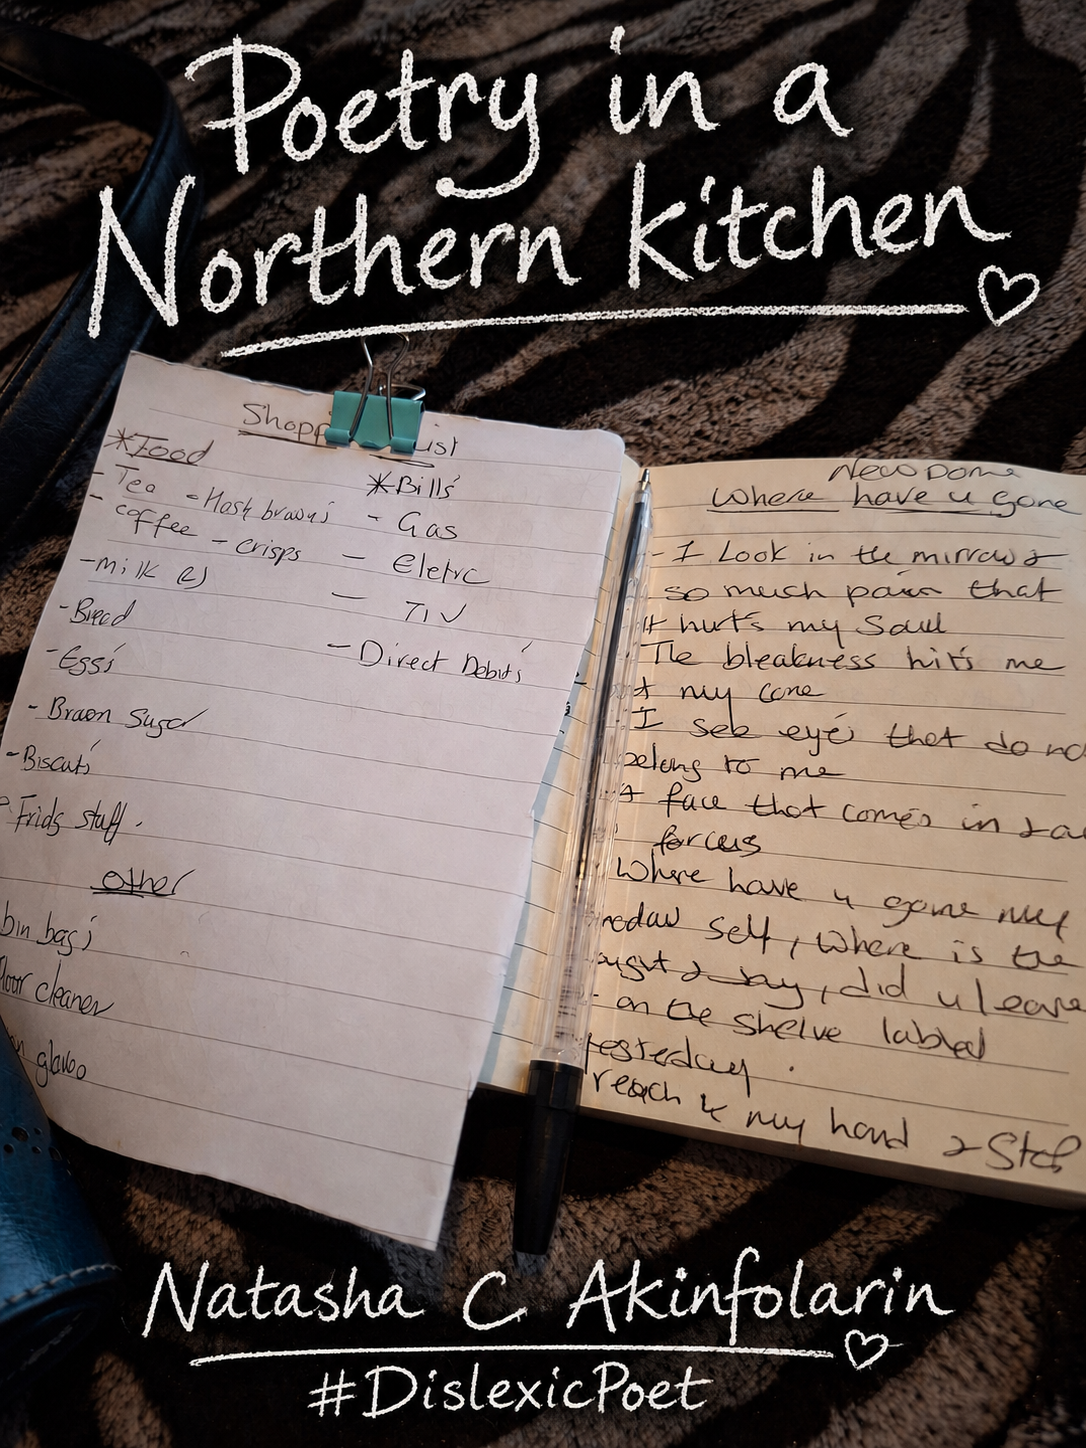 Poetry in a
Northern kitchen
Shopp ist
*Food
- Tea
- Hash browns
- coffee
- crisps
- milk (2)
- Bread
- Eggs
- Braon Sugar
- Biscuits
Frids stuff.
other
bin bags
floor cleaner
*Bills
- Gas
- Eletrc
- TV
- Direct Debits
New Dome
Where have u gone
- I Look in the mirrow &
so much pain that
It hurts my Soul
The bleakness hits me
my core
I see eyes that do no
belong to me
A face that comes in 2
forcus
Where have u gone my
self, where is the
2 say, did u leave
on the shelve labled
yesterday.
reach my hand 2 Sto
Natasha C Akinfolarin
#DislexicPoet